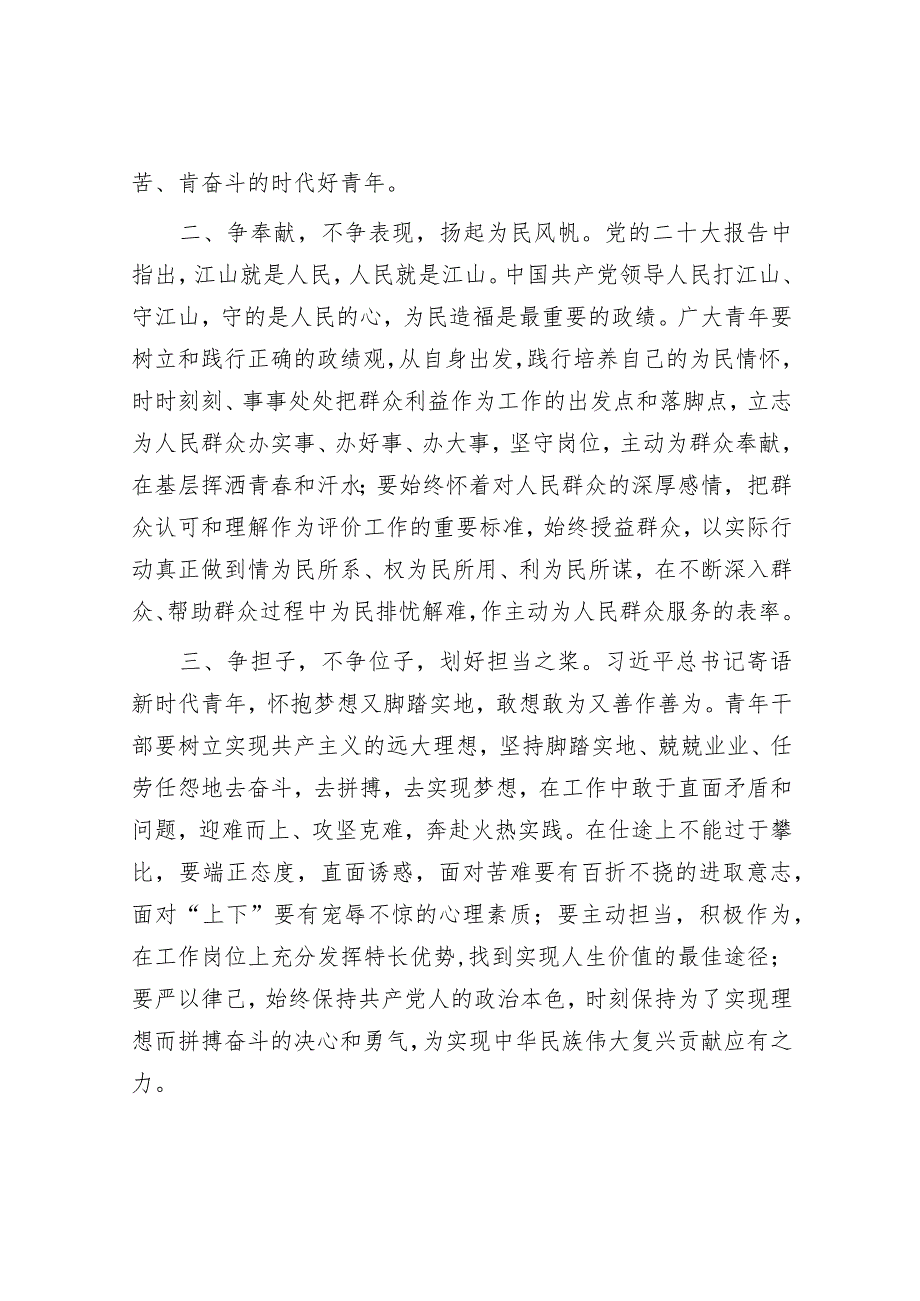 苦、肯奋斗的时代好青年。
二、争奉献，不争表现，扬起为民风帆。党的二十大报告中
指出，江山就是人民，人民就是江山。中国共产党领导人民打江山、
守江山，守的是人民的心，为民造福是最重要的政绩。广大青年要
树立和践行正确的政绩观，从自身出发，践行培养自己的为民情怀，
时时刻刻、事事处处把群众利益作为工作的出发点和落脚点，立志
为人民群众办实事、办好事、办大事，坚守岗位，主动为群众奉献，
在基层挥洒青春和汗水；要始终怀着对人民群众的深厚感情，把群
众认可和理解作为评价工作的重要标准，始终授益群众，以实际行
动真正做到情为民所系、权为民所用、利为民所谋，在不断深入群
众、帮助群众过程中为民排忧解难，作主动为人民群众服务的表率。
三、争担子，不争位子，划好担当之桨。习近平总书记寄语
新时代青年，怀抱梦想又脚踏实地，敢想敢为又善作善为。青年干
部要树立实现共产主义的远大理想，坚持脚踏实地、兢兢业业、任
劳任怨地去奋斗，去拼搏，去实现梦想，在工作中敢于直面矛盾和
问题，迎难而上、攻坚克难，奔赴火热实践。在仕途上不能过于攀
比，要端正态度，直面诱惑，面对苦难要有百折不挠的进取意志，
面对“上下”要有宠辱不惊的心理素质；要主动担当，积极作为，
在工作岗位上充分发挥特长优势,找到实现人生价值的最佳途径；
要严以律己，始终保持共产党人的政治本色，时刻保持为了实现理
想而拼搏奋斗的决心和勇气，为实现中华民族伟大复兴贡献应有之
力。